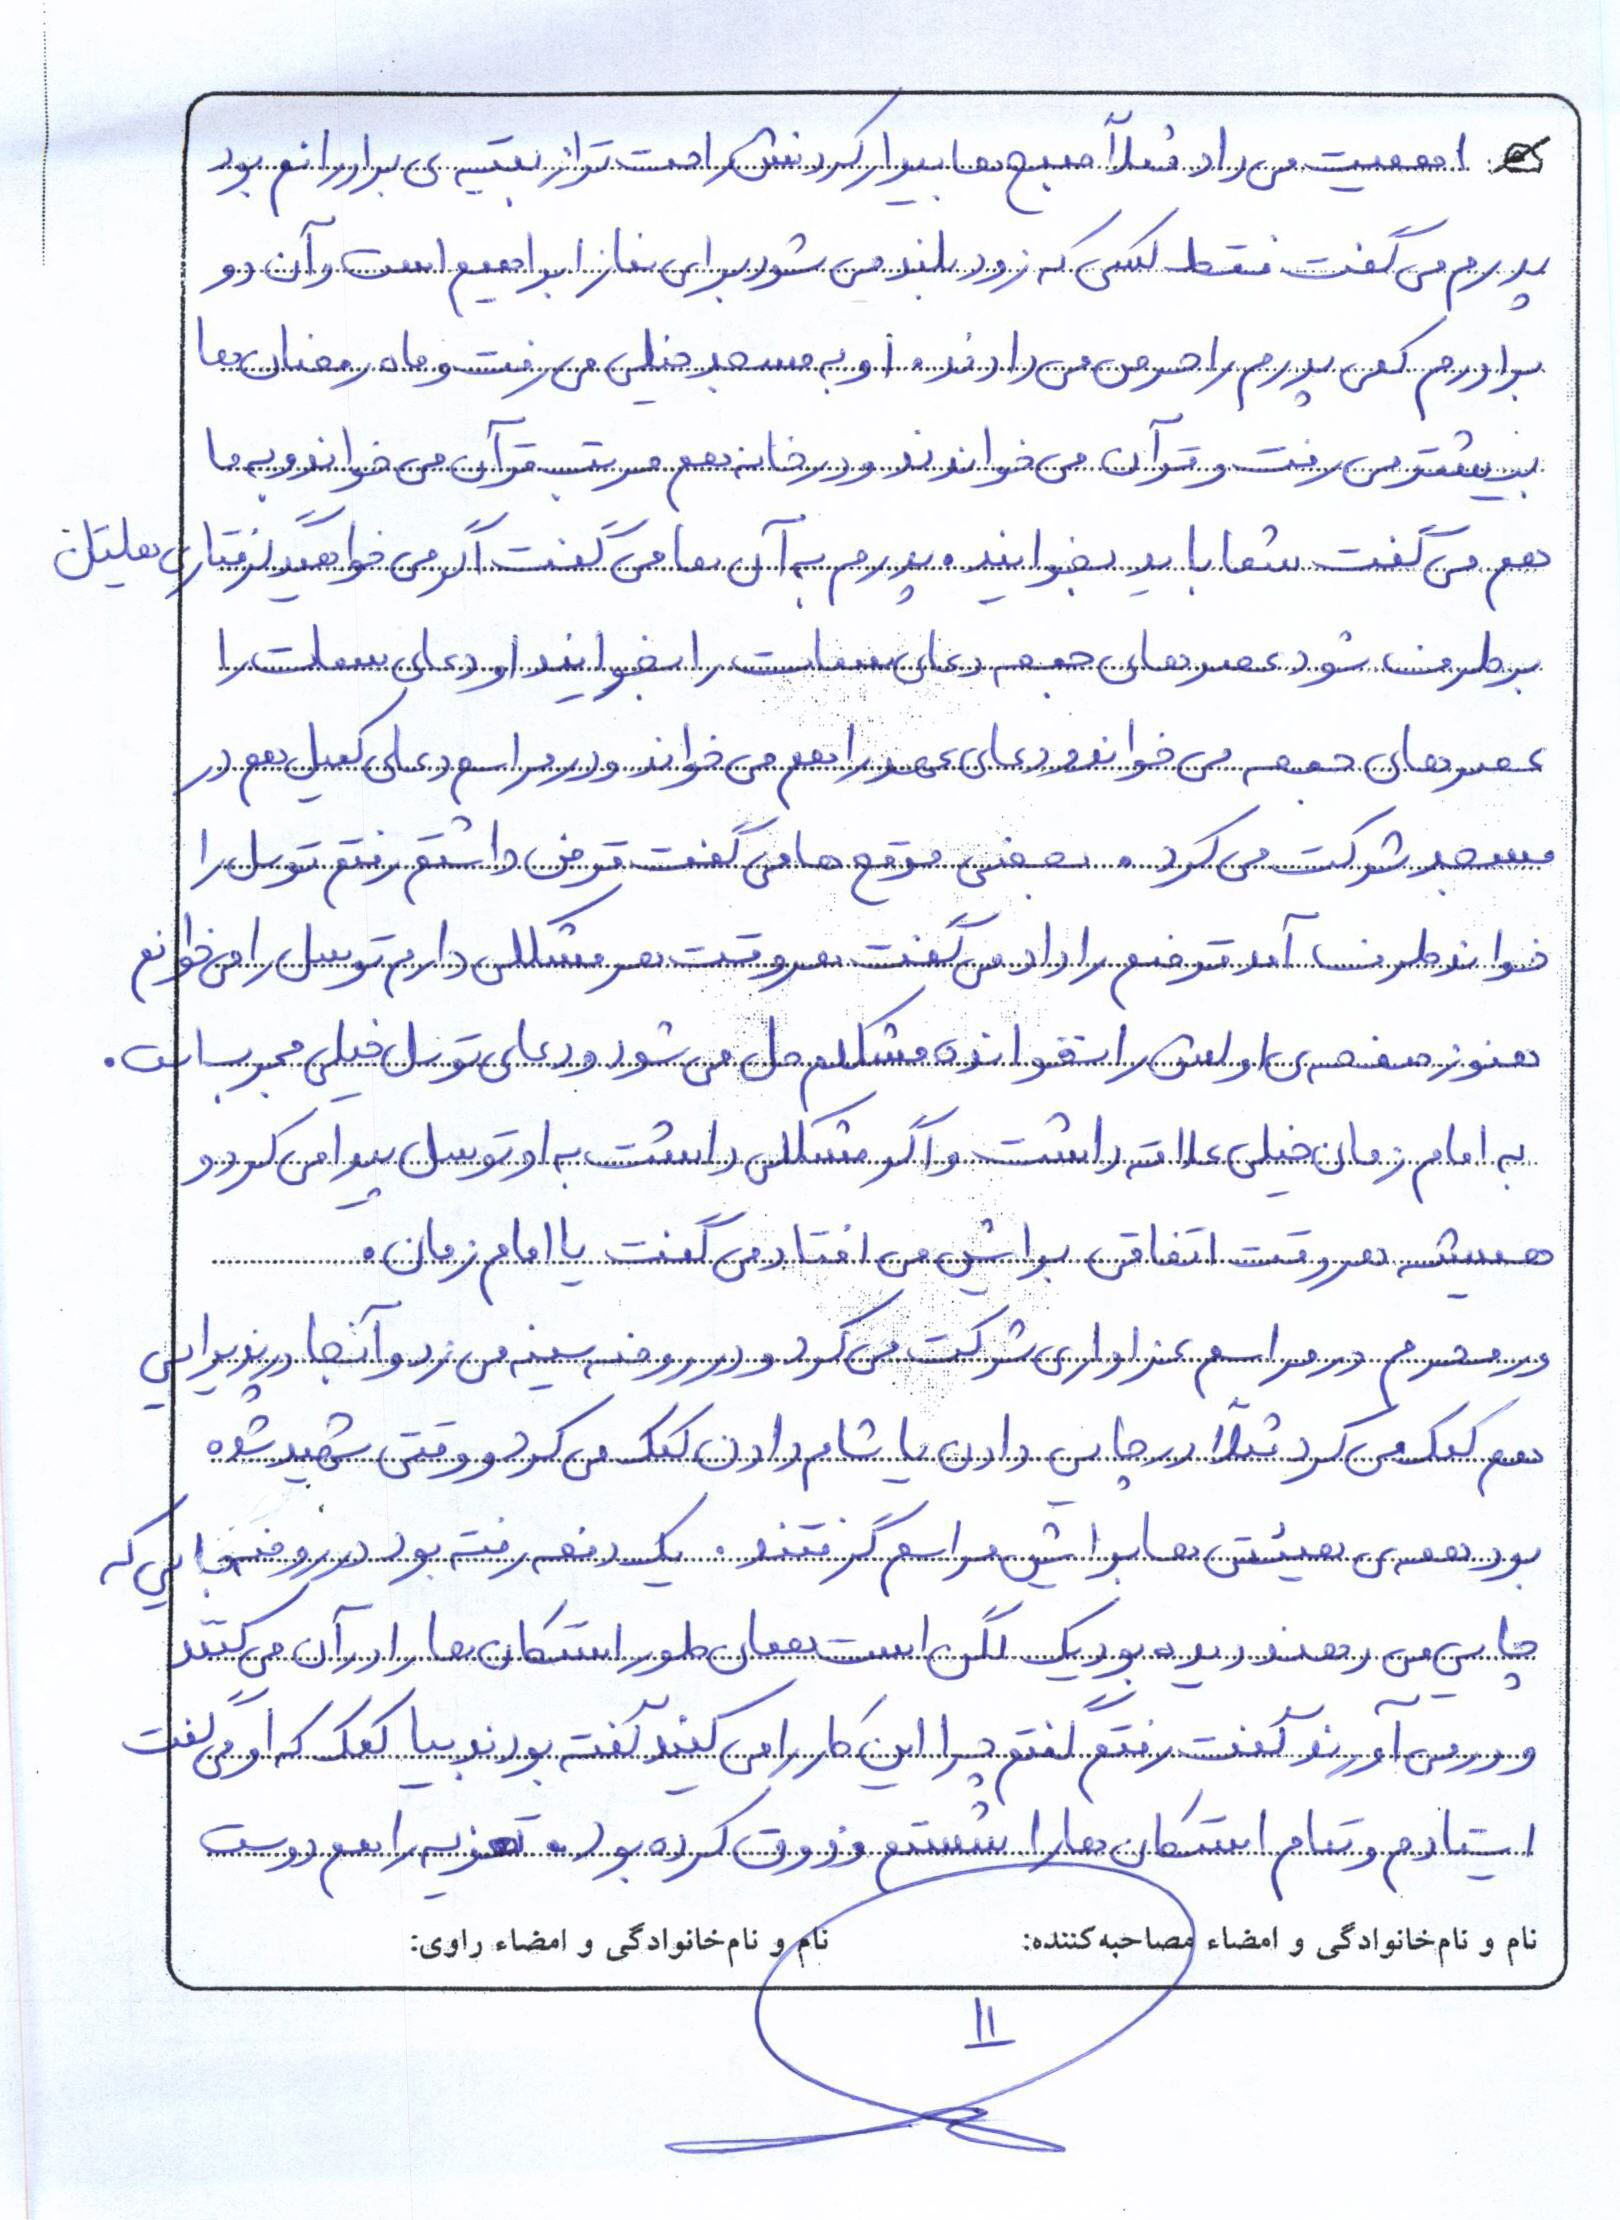 اهمیت می داد مثلاً صبح ها بیدار کردنش راحت تر از بقیه ی برادرانم بود
پدرم می گفت فقط کسی که زود بلند می شود برای نماز ابراهیم است و آن دو
برادرم کمی پدرم را حرص می دادند. او به مسجد خیلی می رفت و ماه رمضان ها
بیشتر می رفت و قرآن می خواندند و در خانه هم مرتب قرآن می خواند و به ما
هم می گفت شما باید بخوانید. پدرم به آن ها می گفت اگر می خواهید گرفتاری هایتان
برطرف شود عصرهای جمعه دعای سمات را بخوانید او دعای سمات را
عصرهای جمعه می خواند و دعای عهد را هم می خواند و در مراسم دعای کمیل هم در
مسجد شرکت می کرد. بعضی موقع ها می گفت قرض داشتم رفتم توسل را
خواند طرف آمد قرضم را داد می گفت هر وقت هر مشکلی دارم توسل را می خوانم
هنوز صفحه ی اولش را نخوانده مشکلم حل می شود و دعای توسل خیلی مجرب است.
به امام زمان خیلی علاقه داشت و اگر مشکلی داشت به او توسل پیدا می کرد و
همیشه هر وقت اتفاقی براش می افتاد می گفت یا امام زمان.
در محرم در مراسم عزاداری شرکت می کرد و در روضه سینه می زد و آنجا در پذیرایی
هم کمک می کرد مثلاً در چایی دادن یا شام دادن کمک می کرد و وقتی شهید شده
بود همه ی هیئتی ها براش مراسم گرفتند. یک دفعه رفته بود در روضه جایی که
چایی می دهند دیده بود یک لگن است همان طور استکان ها را در آن می کنند
و در می آورند گفت رفتم گفتم چرا این کار را می کنید گفته بودند بیا کمک که او می گفت
ایستادم و تمام استکان ها را شستم و ذوق کرده بود. تعزیه را هم دوست
نام و نام‌خانوادگی و امضاء مصاحبه‌کننده: نام و نام‌خانوادگی و امضاء راوی:
۱۱